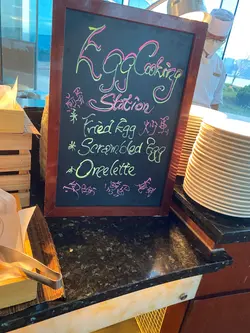 Egg Cooking
Station
* Fried Egg
* Scrambled Egg
* Omelette